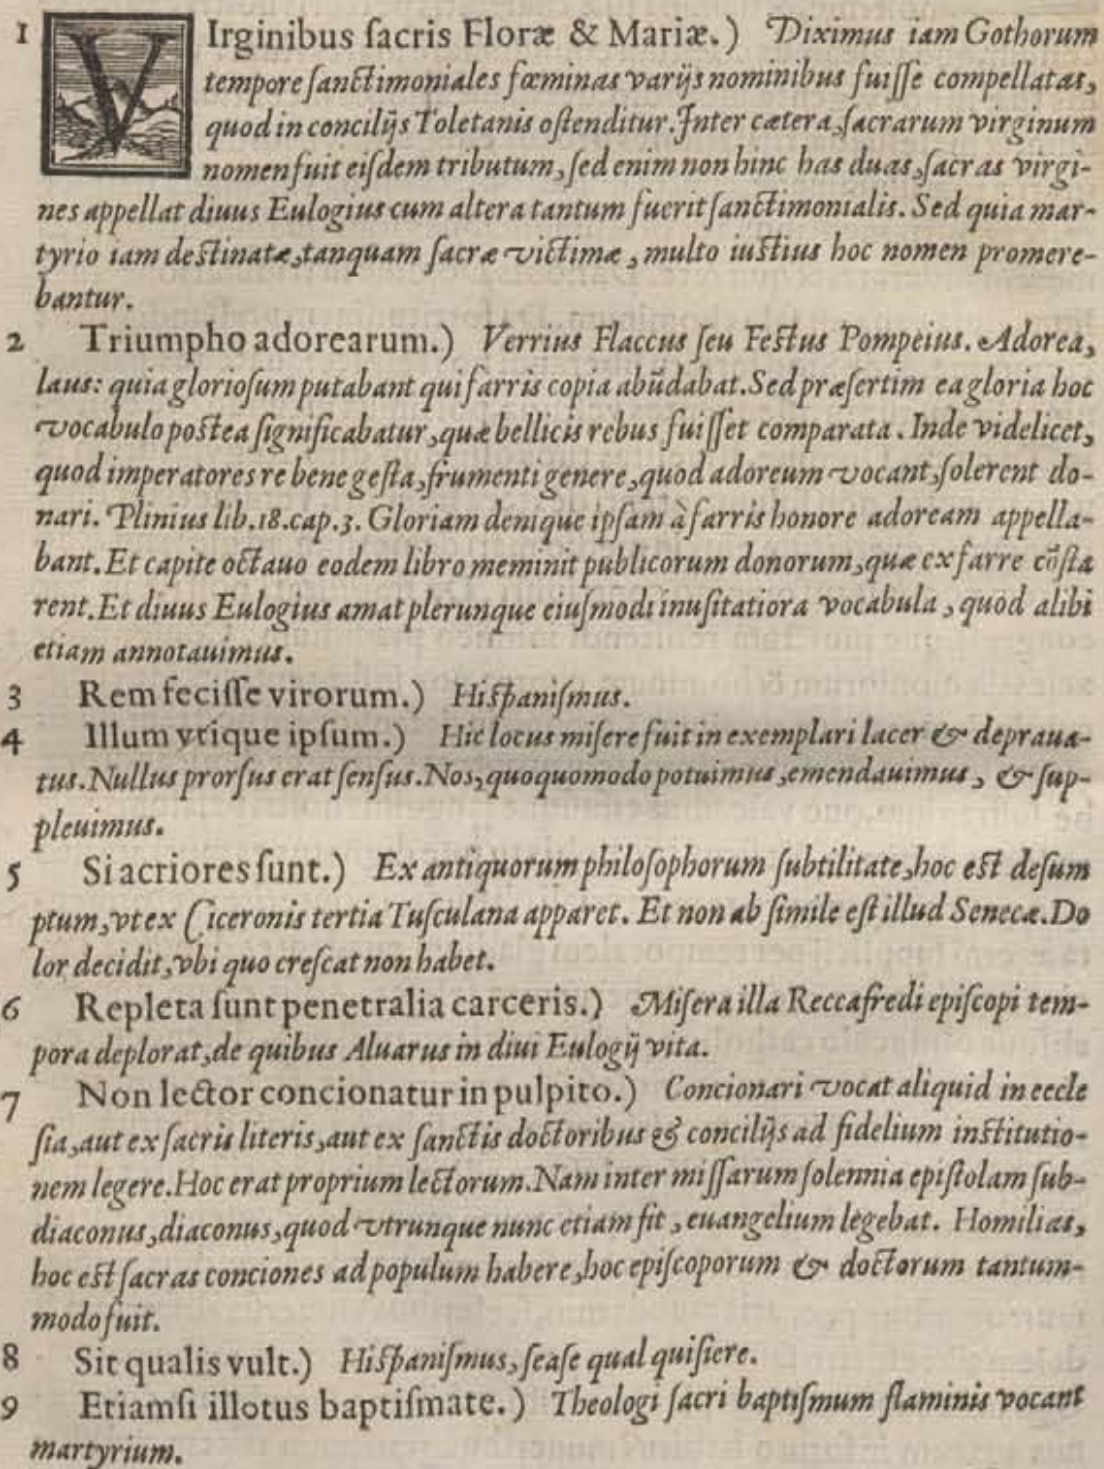 1 VIrginibus ſacris Floræ & Mariæ.) Diximus iam Gothorum
tempore ſanctimoniales fœminas varijs nominibus fuiſſe compellatas,
quod in concilijs Toletanis oſtenditur. Inter cætera, ſacrarum virginum
nomen fuit eiſdem tributum, ſed enim non hinc has duas, ſacras virgi-
nes appellat diuus Eulogius cum altera tantum fuerit ſanctimonialis. Sed quia mar-
tyrio iam deſtinatæ, tanquam ſacræ victimæ, multo iuſtius hoc nomen promere-
bantur.
2 Triumpho adorearum.) Verrius Flaccus ſeu Feſtus Pompeius. Adorea,
laus: quia glorioſum putabant qui farris copia abūdabat. Sed præſertim ea gloria hoc
vocabulo poſtea ſignificabatur, quæ bellicis rebus fuiſſet comparata. Inde videlicet,
quod imperatores re bene geſta, frumenti genere, quod adoreum vocant, ſolerent do-
nari. Plinius lib.18.cap.3. Gloriam denique ipſam à farris honore adoream appella-
bant. Et capite octauo eodem libro meminit publicorum donorum, quæ ex farre cōſta
rent. Et diuus Eulogius amat plerunque eiuſmodi inuſitatiora vocabula, quod alibi
etiam annotauimus.
3 Rem feciſſe virorum.) Hiſpaniſmus.
4 Illum vtique ipſum.) Hic locus miſere fuit in exemplari lacer & depraua-
tus. Nullus prorſus erat ſenſus. Nos, quoquomodo potuimus, emendauimus, & ſup-
pleuimus.
5 Si acriores ſunt.) Ex antiquorum philoſophorum ſubtilitate, hoc eſt deſum
ptum, vt ex Ciceronis tertia Tuſculana apparet. Et non ab ſimile eſt illud Senecæ. Do
lor decidit, vbi quo creſcat non habet.
6 Repleta ſunt penetralia carceris.) Miſera illa Reccafredi epiſcopi tem-
pora deplorat, de quibus Aluarus in diui Eulogij vita.
7 Non lector concionatur in pulpito.) Concionari vocat aliquid in eccle
ſia, aut ex ſacris literis, aut ex ſanctis doctoribus & concilijs ad fidelium inſtitutio-
nem legere. Hoc erat proprium lectorum. Nam inter miſſarum ſolennia epiſtolam ſub-
diaconus, diaconus, quod vtrunque nunc etiam fit, euangelium legebat. Homilias,
hoc eſt ſacras conciones ad populum habere, hoc epiſcoporum & doctorum tantum-
modo fuit.
8 Sit qualis vult.) Hiſpaniſmus, ſeaſe qual quiſiere.
9 Etiamſi illotus baptiſmate.) Theologi ſacri baptiſmum flaminis vocant
martyrium.